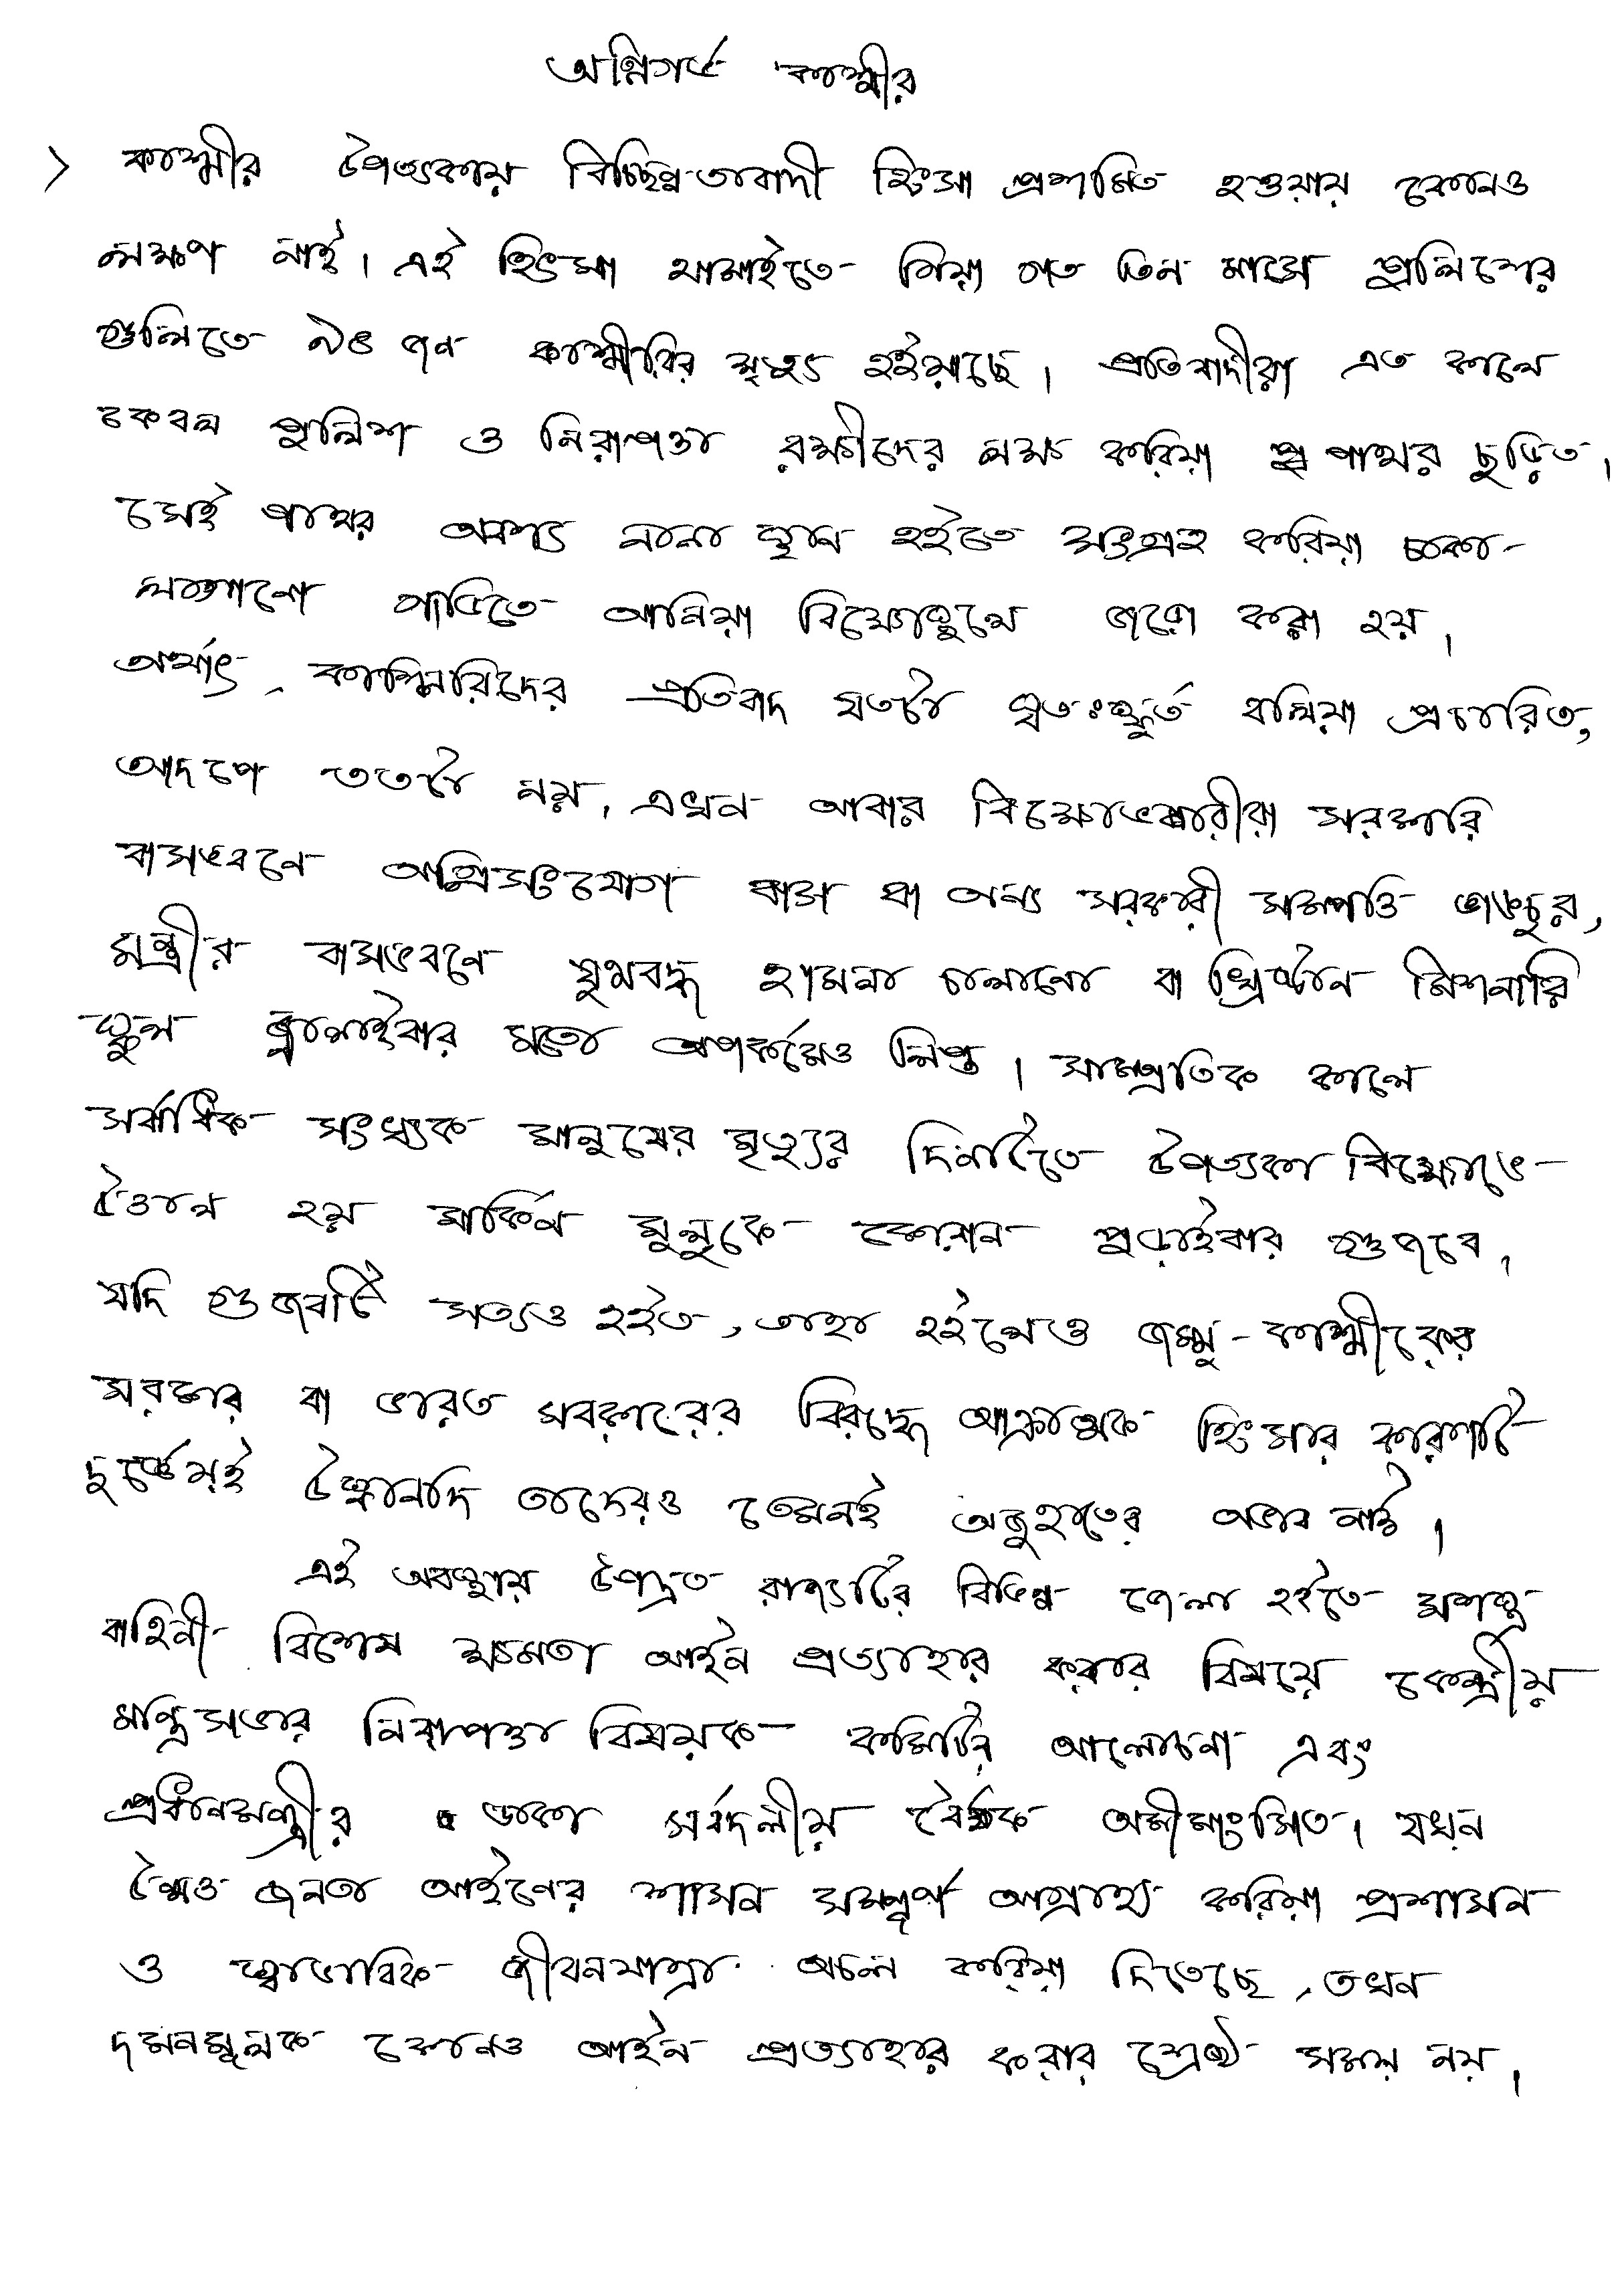 অগ্নিগর্ভ কাশ্মীর
> কাশ্মীর উপত্যকায় বিচ্ছিন্নতাবাদী হিংসা প্রশমিত হওয়ায় কোনও
লক্ষণ নাই। এই হিংসা থামাইতে গিয়া গত তিন মাসে পুলিশের
গুলিতে ৯৬ জন কাশ্মীরির মৃত্যু হইয়াছে। প্রতিবাদীরা এত কালে
কেবল পুলিশ ও নিরাপত্তা রক্ষীদের লক্ষ করিয়া পাথর ছুড়িত।
সেই পাথর অবশ্য নানা স্থান হইতে সংগ্রহ করিয়া চাকা-
লাগানো গাড়িতে আনিয়া বিক্ষোভস্থলে জড়ো করা হয়।
অর্থাৎ, কাশ্মিরিদের প্রতিবাদ যতটা স্বতঃস্ফূর্ত বলিয়া প্রচারিত,
আদপে ততটা নয়, এখন আবার বিক্ষোভকারীরা সরকারি
বাসভবনে অগ্নিসংযোগ বাস বা অন্য সরকারী সম্পত্তি ভাঙচুর,
মন্ত্রীর বাসভবনে যুথবদ্ধ হামলা চালানো বা খ্রিস্টান মিশনারি
স্কুল জ্বালাইবার মতো অপকর্মেও লিপ্ত। সাম্প্রতিক কালে
সর্বাধিক সংখ্যক মানুষের মৃত্যুর দিনটিতে উপত্যকা বিক্ষোভে
উত্তাল হয় মার্কিন মুলুকে কোরান পুড়াইবার গুজবে,
যদি গুজবটি সত্যও হইত, তাহা হইলেও জম্মু-কাশ্মীরের
সরকার বা ভারত সরকারের বিরদ্ধে আক্রাত্মক হিংসার কারণটি
দুর্জ্ঞেয়ই উস্কানিদি তাদেরও তেমনই অজুহাতের অভাব নাই।
এই অবস্থায় উপদ্রুত রাজ্যটির বিভিন্ন জেলা হইতে সশস্ত্র
বাহিনী বিশেষ ক্ষমতা আইন প্রত্যাহার করার বিষয়ে কেন্দ্রীয়
মন্ত্রিসভার নিরাপত্তা বিষয়ক কমিটির আলোচনা এবং
প্রধানমন্ত্রীর ডাকা সর্বদলীয় বৈঠক অমীমাংসিত। যখন
উন্মত্ত জনতা আইনের শাসন সম্পূর্ণ অগ্রাহ্য করিয়া প্রশাসন
ও স্বাভাবিক জীবনযাত্রা অচল করিয়া দিতেছে, তখন
দমনমূলক কোনও আইন প্রত্যাহার করার শ্রেষ্ঠ সময় নয়।